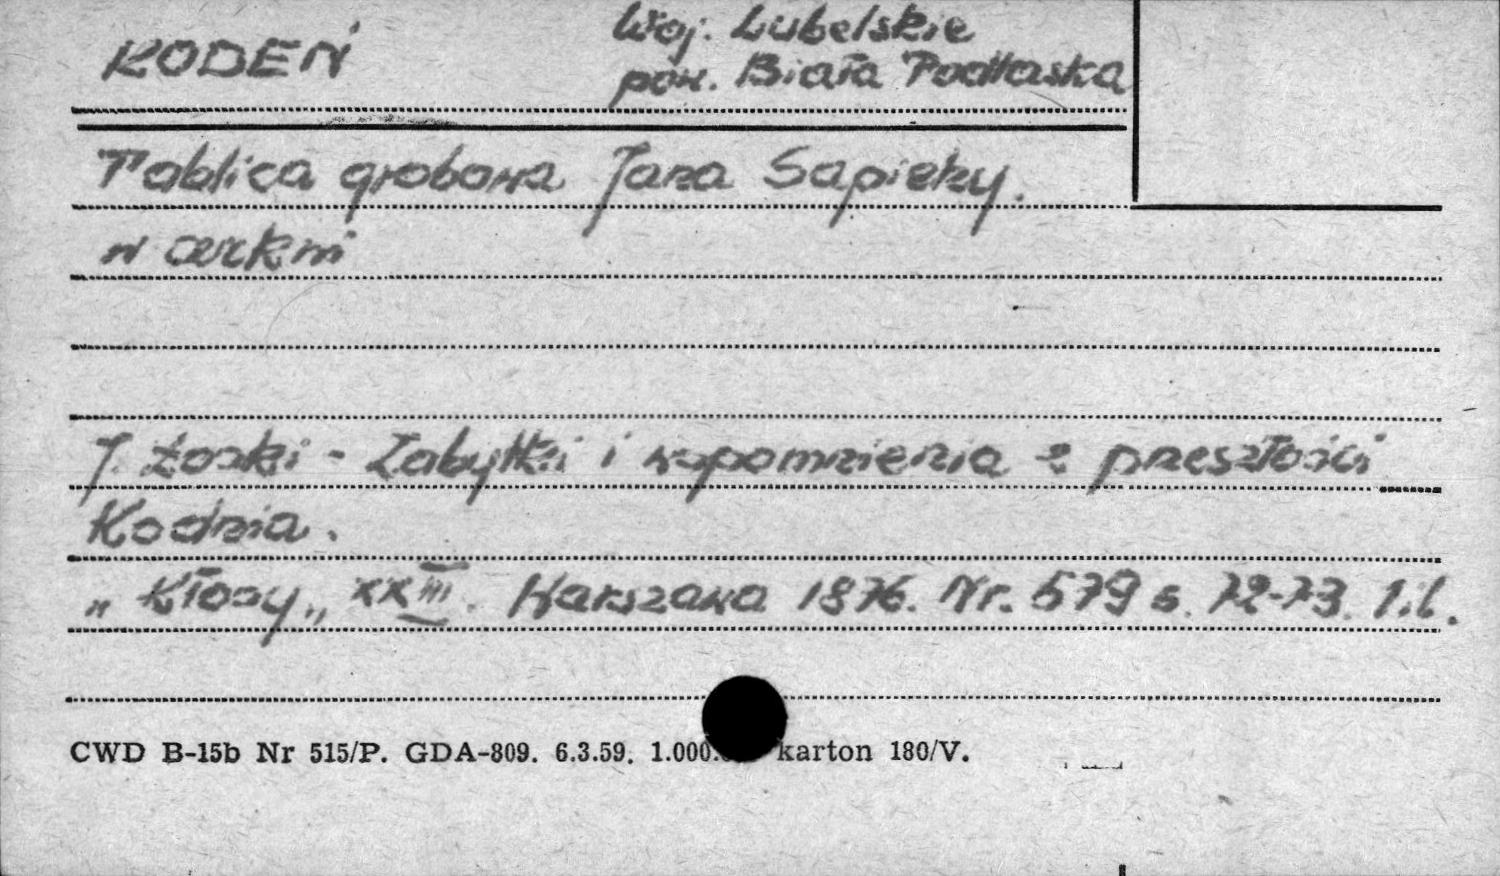 KODEŃ
Woj. Lubelskie
pow. Biała Podlaska
Tablica grobowa Jana Sapiehy.
w cerkwi
J. Łoski - Zabytki i wspomnienia z przeszłości
Kodnia.
„Kłosy„ XXIII. Warszawa 1876. Nr. 579 s. 72-73. 1.il.
CWD B-15b Nr 515/P. GDA-809. 6.3.59. karton 180/V.